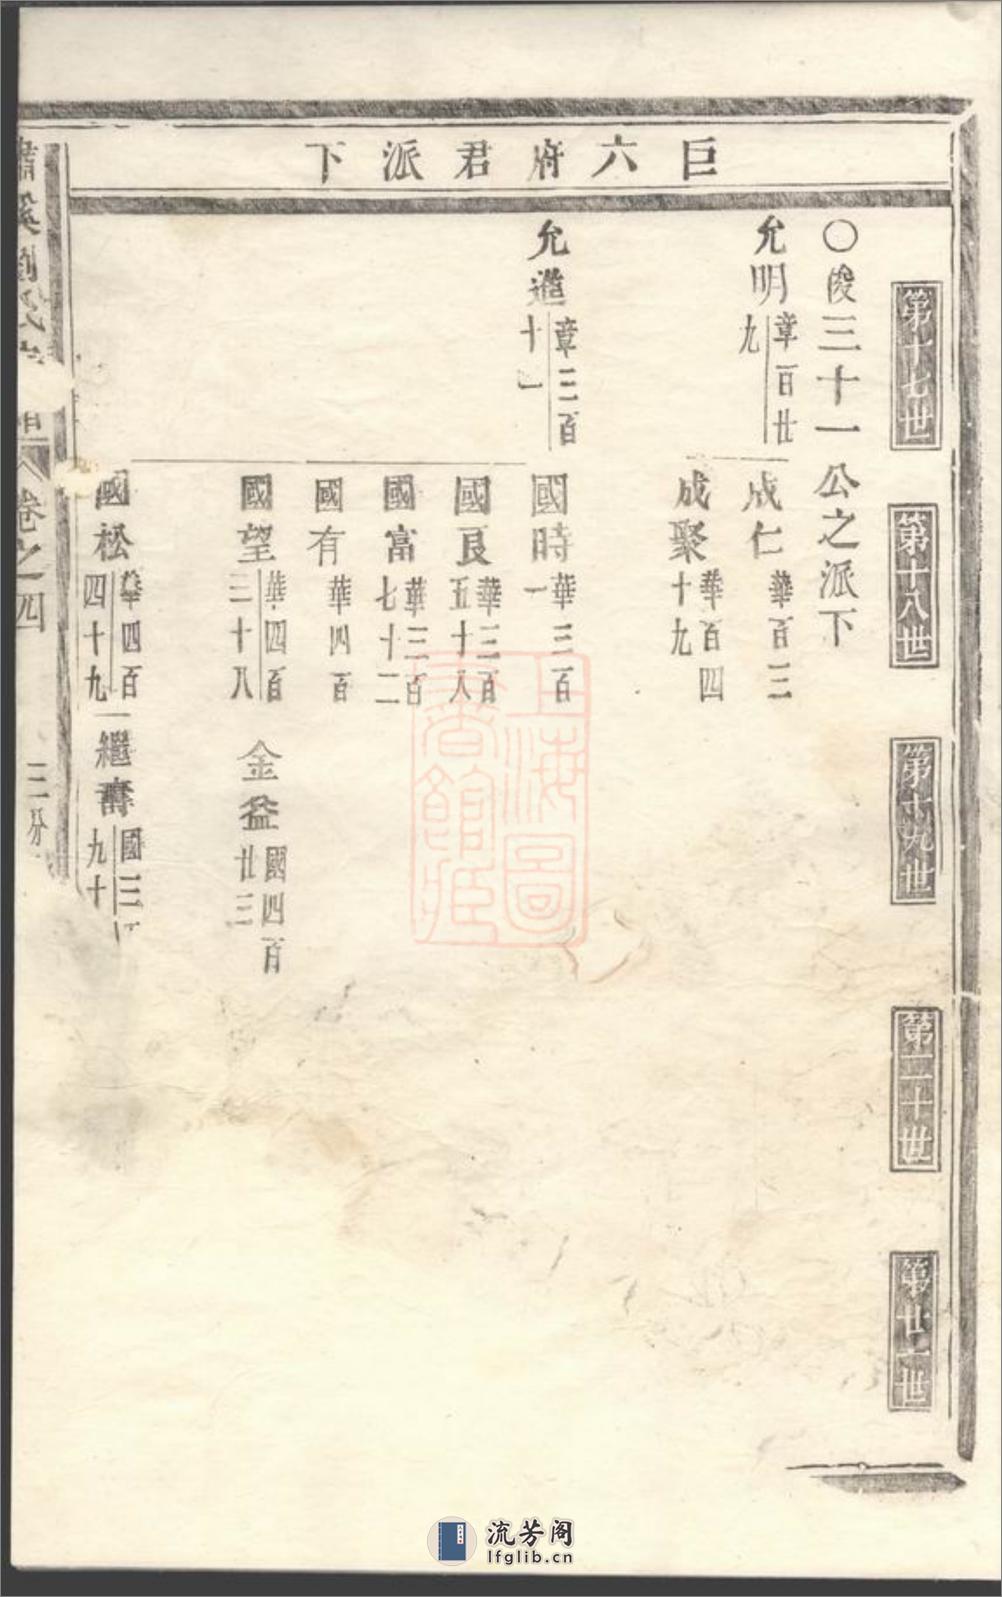 巨六府君派下
第十七世
第十八世
第十九世
第二十世
第廿一世
〇俊三十一公之派下
允明 章百廿九
成仁 華百三
成聚 華百四十九
允進 章三百十一
國時 華三百一
國良 華三百五十八
國富 華三百七十二
國有 華四百
國望 華四百三十八
金益 國四百廿三
國松 華四百四十九
繼壽 國三 九十
劉氏
卷之四
三分
上海圖書館藏
流芳阁
lfglib.cn